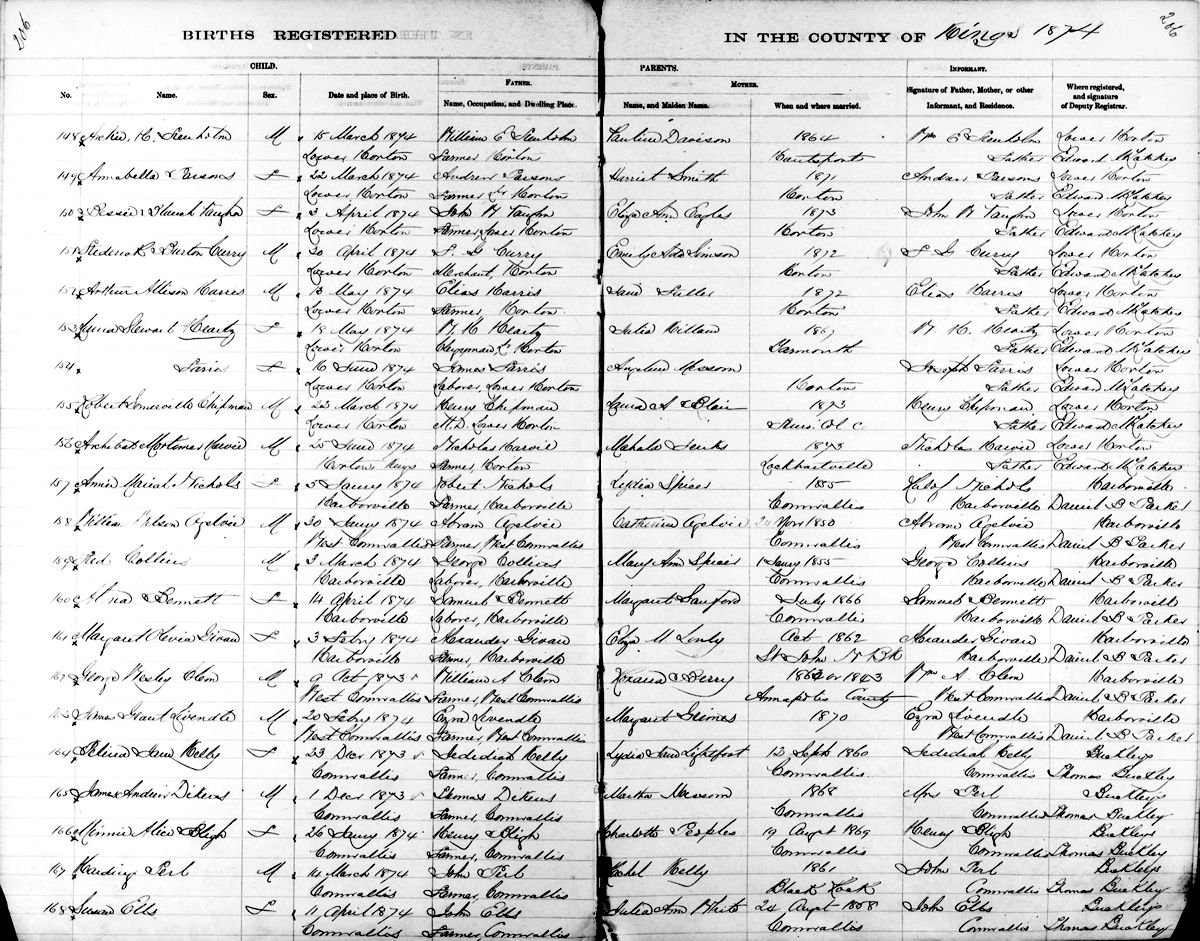 206
206
BIRTHS REGISTERED IN THE COUNTY OF Kings 1874
CHILD. PARENTS.
FATHER. MOTHER. INFORMANT.
No. Name. Sex. Date and place of Birth. Name, Occupation, and Dwelling Place. Name, and Maiden Name. When and where married. Signature of Father, Mother, or other Informant, and Residence. Where registered, and signature of Deputy Registrar.
148 M 15 March 1874 William Pauline Davison 1864 Wm Lower Horton
Lower Horton Farmer Horton Hantsport Father Edward
149 Annabella Parsons F 22 March 1874 Andrew Parsons Harriet Smith 1871 Andrew Parsons Lower Horton
Lower Horton Farmer Horton Horton Father Edward
150 Bessie Vaughn F 3 April 1874 John W Vaughn Eliza Ann Eagles 1873 John W Vaughn Lower Horton
Lower Horton Farmer Lower Horton Horton Father Edward
151 Frederick Burton Curry M 30 April 1874 Curry Emily Ada Simson 1872 Curry Lower Horton
Lower Horton Merchant, Horton Horton Father Edward
152 Arthur Allison Harris M 13 May 1874 Elias Harris Fuller 1872 Elias Harris Lower Horton
Lower Horton Farmer Horton Horton Father Edward
153 Stewart Hearty F 18 May 1874 W. H. Hearty Julia Killam 1867 W. H. Hearty Lower Horton
Lower Horton Clergyman Horton Yarmouth Father Edward
154 F 16 June 1874 James Angeline Joseph Lower Horton
Lower Horton Laborer, Lower Horton Horton Father Edward
155 Robert Somerville Chipman M 22 March 1874 Henry Chipman Laura A Blair 1873 Henry Chipman Lower Horton
Lower Horton M.D. Lower Horton Father Edward
156 Archibald Mortimer Harvie M June 1874 Nicholas Harvie Mahala Jenks 1873 Nicholas Harvie Lower Horton
Horton, Kings Farmer, Horton Lockhartville Father Edward
157 Annie Mariah Nichols F 5 Jany 1874 Robert Nichols Lydia Spicer 1855 Nichols Harborville
Harborville Farmer, Harborville Cornwallis Harborville Daniel B Parker
158 William Wilson Ogelvie M 30 Jany 1874 Abram Ogelvie Catherine Ogelvie Novr 1850 Abram Ogelvie Harborville
West Cornwallis Farmer, West Cornwallis Cornwallis West Cornwallis Daniel B Parker
159 Collins M 3 March 1874 George Collins Mary Ann Spicer 1 Jany 1855 George Collins Harborville
Harborville Laborer, Harborville Cornwallis Harborville Daniel B Parker
160 Bennett F 14 April 1874 Samuel Bennett Margaret Sanford July 1866 Samuel Bennett Harborville
Harborville Laborer, Harborville Cornwallis Harborville Daniel B Parker
161 Margaret Olivia Givan F 3 Feby 1874 Alexander Givan Eliza M Oct 1862 Alexander Givan Harborville
Harborville Farmer, Harborville St John N Bk Harborville Daniel B Parker
162 George Wesley Clem M 9 Oct 1873 William A Clem Berry 1862 or 1863 Wm A. Clem Harborville
West Cornwallis Farmer, West Cornwallis Annapolis County West Cornwallis Daniel B Parker
163 James Grant M 20 Feby 1874 Ezra Margaret Grimes 1870 Ezra Harborville
West Cornwallis Farmer, West Cornwallis West Cornwallis Daniel B Parker
164 Jane Kelly F 23 Decr 1873 Jedediah Kelly Lydia Jane Lightfoot 12 Septr 1860 Jedediah Kelly Buckleys
Cornwallis Farmer, Cornwallis Cornwallis Cornwallis Thomas Buckley
165 James Andrew Dikens M 1 Decr 1873 Thomas Dikens Martha 1868 Mrs Buckleys
Cornwallis Farmer, Cornwallis Cornwallis Cornwallis Thomas Buckley
166 Minnie Alice Bligh F 26 Jany 1874 Henry Bligh Charlotte Peoples 19 Augst 1869 Henry Bligh Buckleys
Cornwallis Farmer, Cornwallis Cornwallis Cornwallis Thomas Buckley
167 Harding M 14 March 1874 John Rachel Kelly 1861 John Buckleys
Cornwallis Farmer, Cornwallis Black Rock Cornwallis Thomas Buckley
168 Susan Ells F 11 April 1874 John Ells Julia Ann White 24 Augst 1858 John Ells Buckleys
Cornwallis Farmer, Cornwallis Cornwallis Cornwallis Thomas Buckley